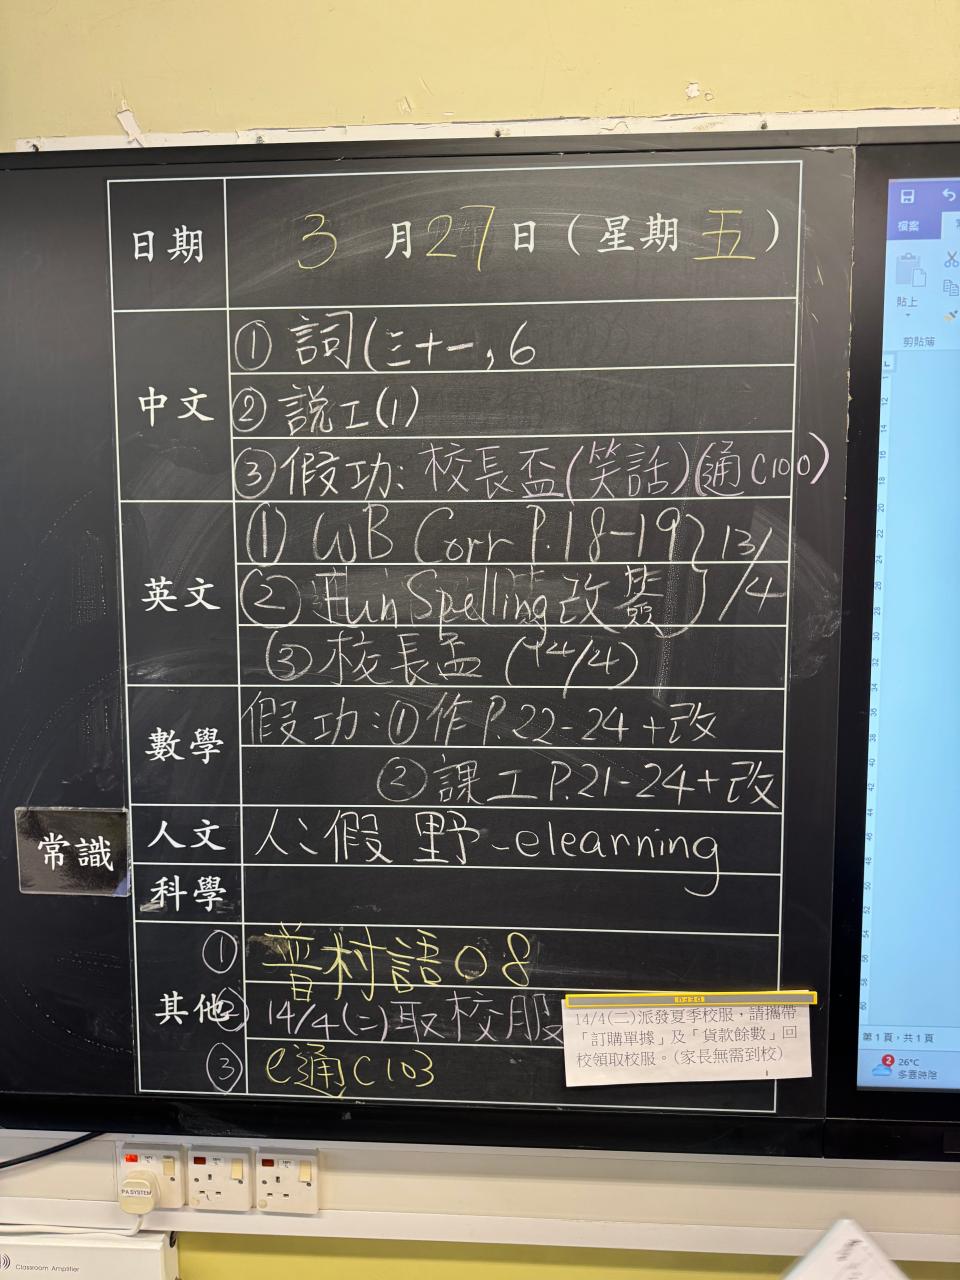 日期 3月27日(星期五)
中文
① 詞(三十一,6
② 說工(1)
③ 假功:校長盃(笑話)(通C100)
英文
① WB Corr P.18-19 } 13/4
② Fun Spelling 改簽
③ 校長盃 (14/4)
數學
假功:① 作P.22-24+改
② 課工P.21-24+改
常識
人文
人:假 野-elearning
科學
其他
① 普村語08
② 14/4(二)取校服
③ e通C103
14/4(二)派發夏季校服,請攜帶
「訂購單據」及「貨款餘數」回
校領取校服。(家長無需到校)
檔案
貼上
剪貼簿
第1頁,共1頁
2
26°C
多雲時陰
PA SYSTEM
Classroom Amplifier